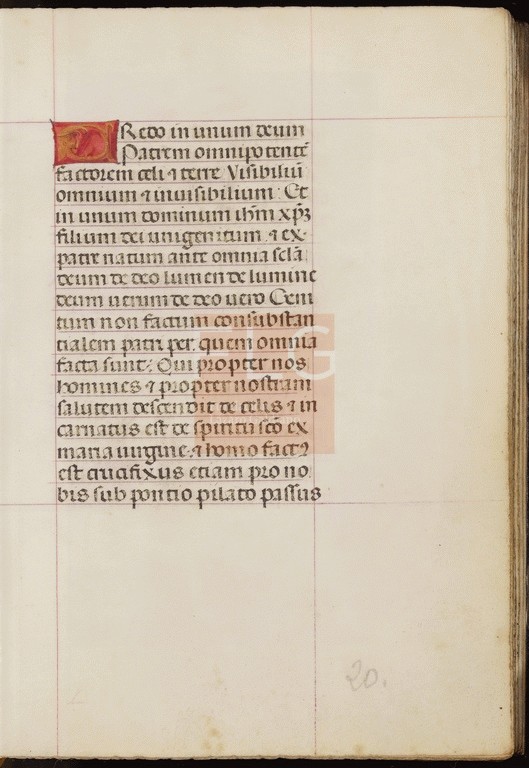 CRedo in unum deum
Patrem omnipotentē
factorem celi ⁊ terre Visibiliū
omnium ⁊ inuisibilium: Et
in unum dominum ihm̄ xp̄ꝫ
filium dei unigenitum. ⁊ ex
patre natum ante omnia scl̄a
deum de deo lumen de lumine
deum uerum de deo uero Geni
tum non factum consubstan
tialem patri per quem omnia
facta sunt: Qui propter nos
homines ⁊ propter nostram
salutem descendit de celis ⁊ in
carnatus est de spiritu sc̄o ex
maria uirgine. ⁊ homo factꝰ
est crucifixus etiam pro no
bis sub pontio pilato passus
20.